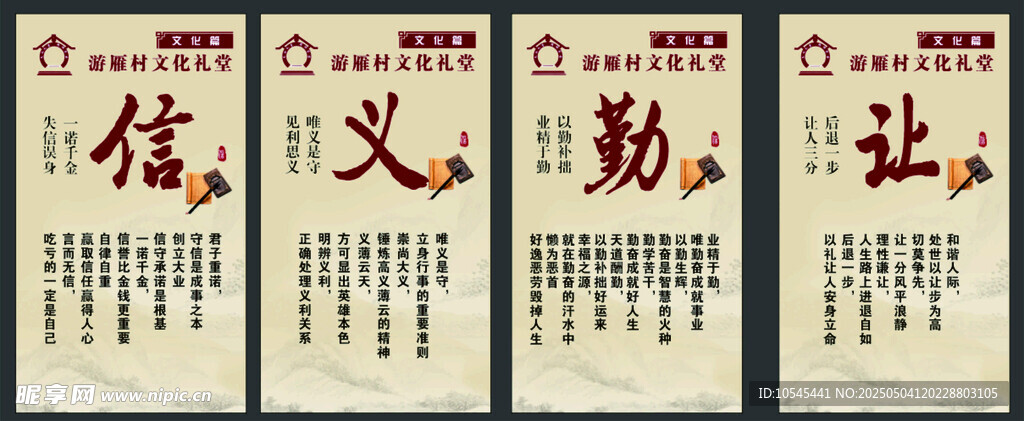 文化篇
游雁村文化礼堂
信
一诺千金
失信误身
君子重诺，
守信是成事之本
创立大业
信守承诺是根基
一诺千金，
信誉比金钱更重要
自律自重
赢取信任赢得人心
言而无信，
吃亏的一定是自己
文化篇
游雁村文化礼堂
义
唯义是守
见利思义
唯义是守，
立身行事的重要准则
崇尚大义，
锤炼高义薄云的精神
义薄云天，
方可显出英雄本色
明辨义利，
正确处理义利关系
文化篇
游雁村文化礼堂
勤
以勤补拙
业精于勤
业精于勤，
唯勤奋成就事业
以勤生辉，
勤奋是智慧的火种
勤学苦干，
勤奋成就好人生
天道酬勤，
以勤补拙好运来
幸福之源，
就在勤奋的汗水中
懒为恶首
好逸恶劳毁掉人生
文化篇
游雁村文化礼堂
让
后退一步
让人三分
和谐人际，
处世以让步为高
切莫争先，
让一分风平浪静
理性谦让，
人生路上进退自如
后退一步，
以礼让人安身立命
昵享网 www.nipic.cn
ID:10545441 NO:20250504120228803105